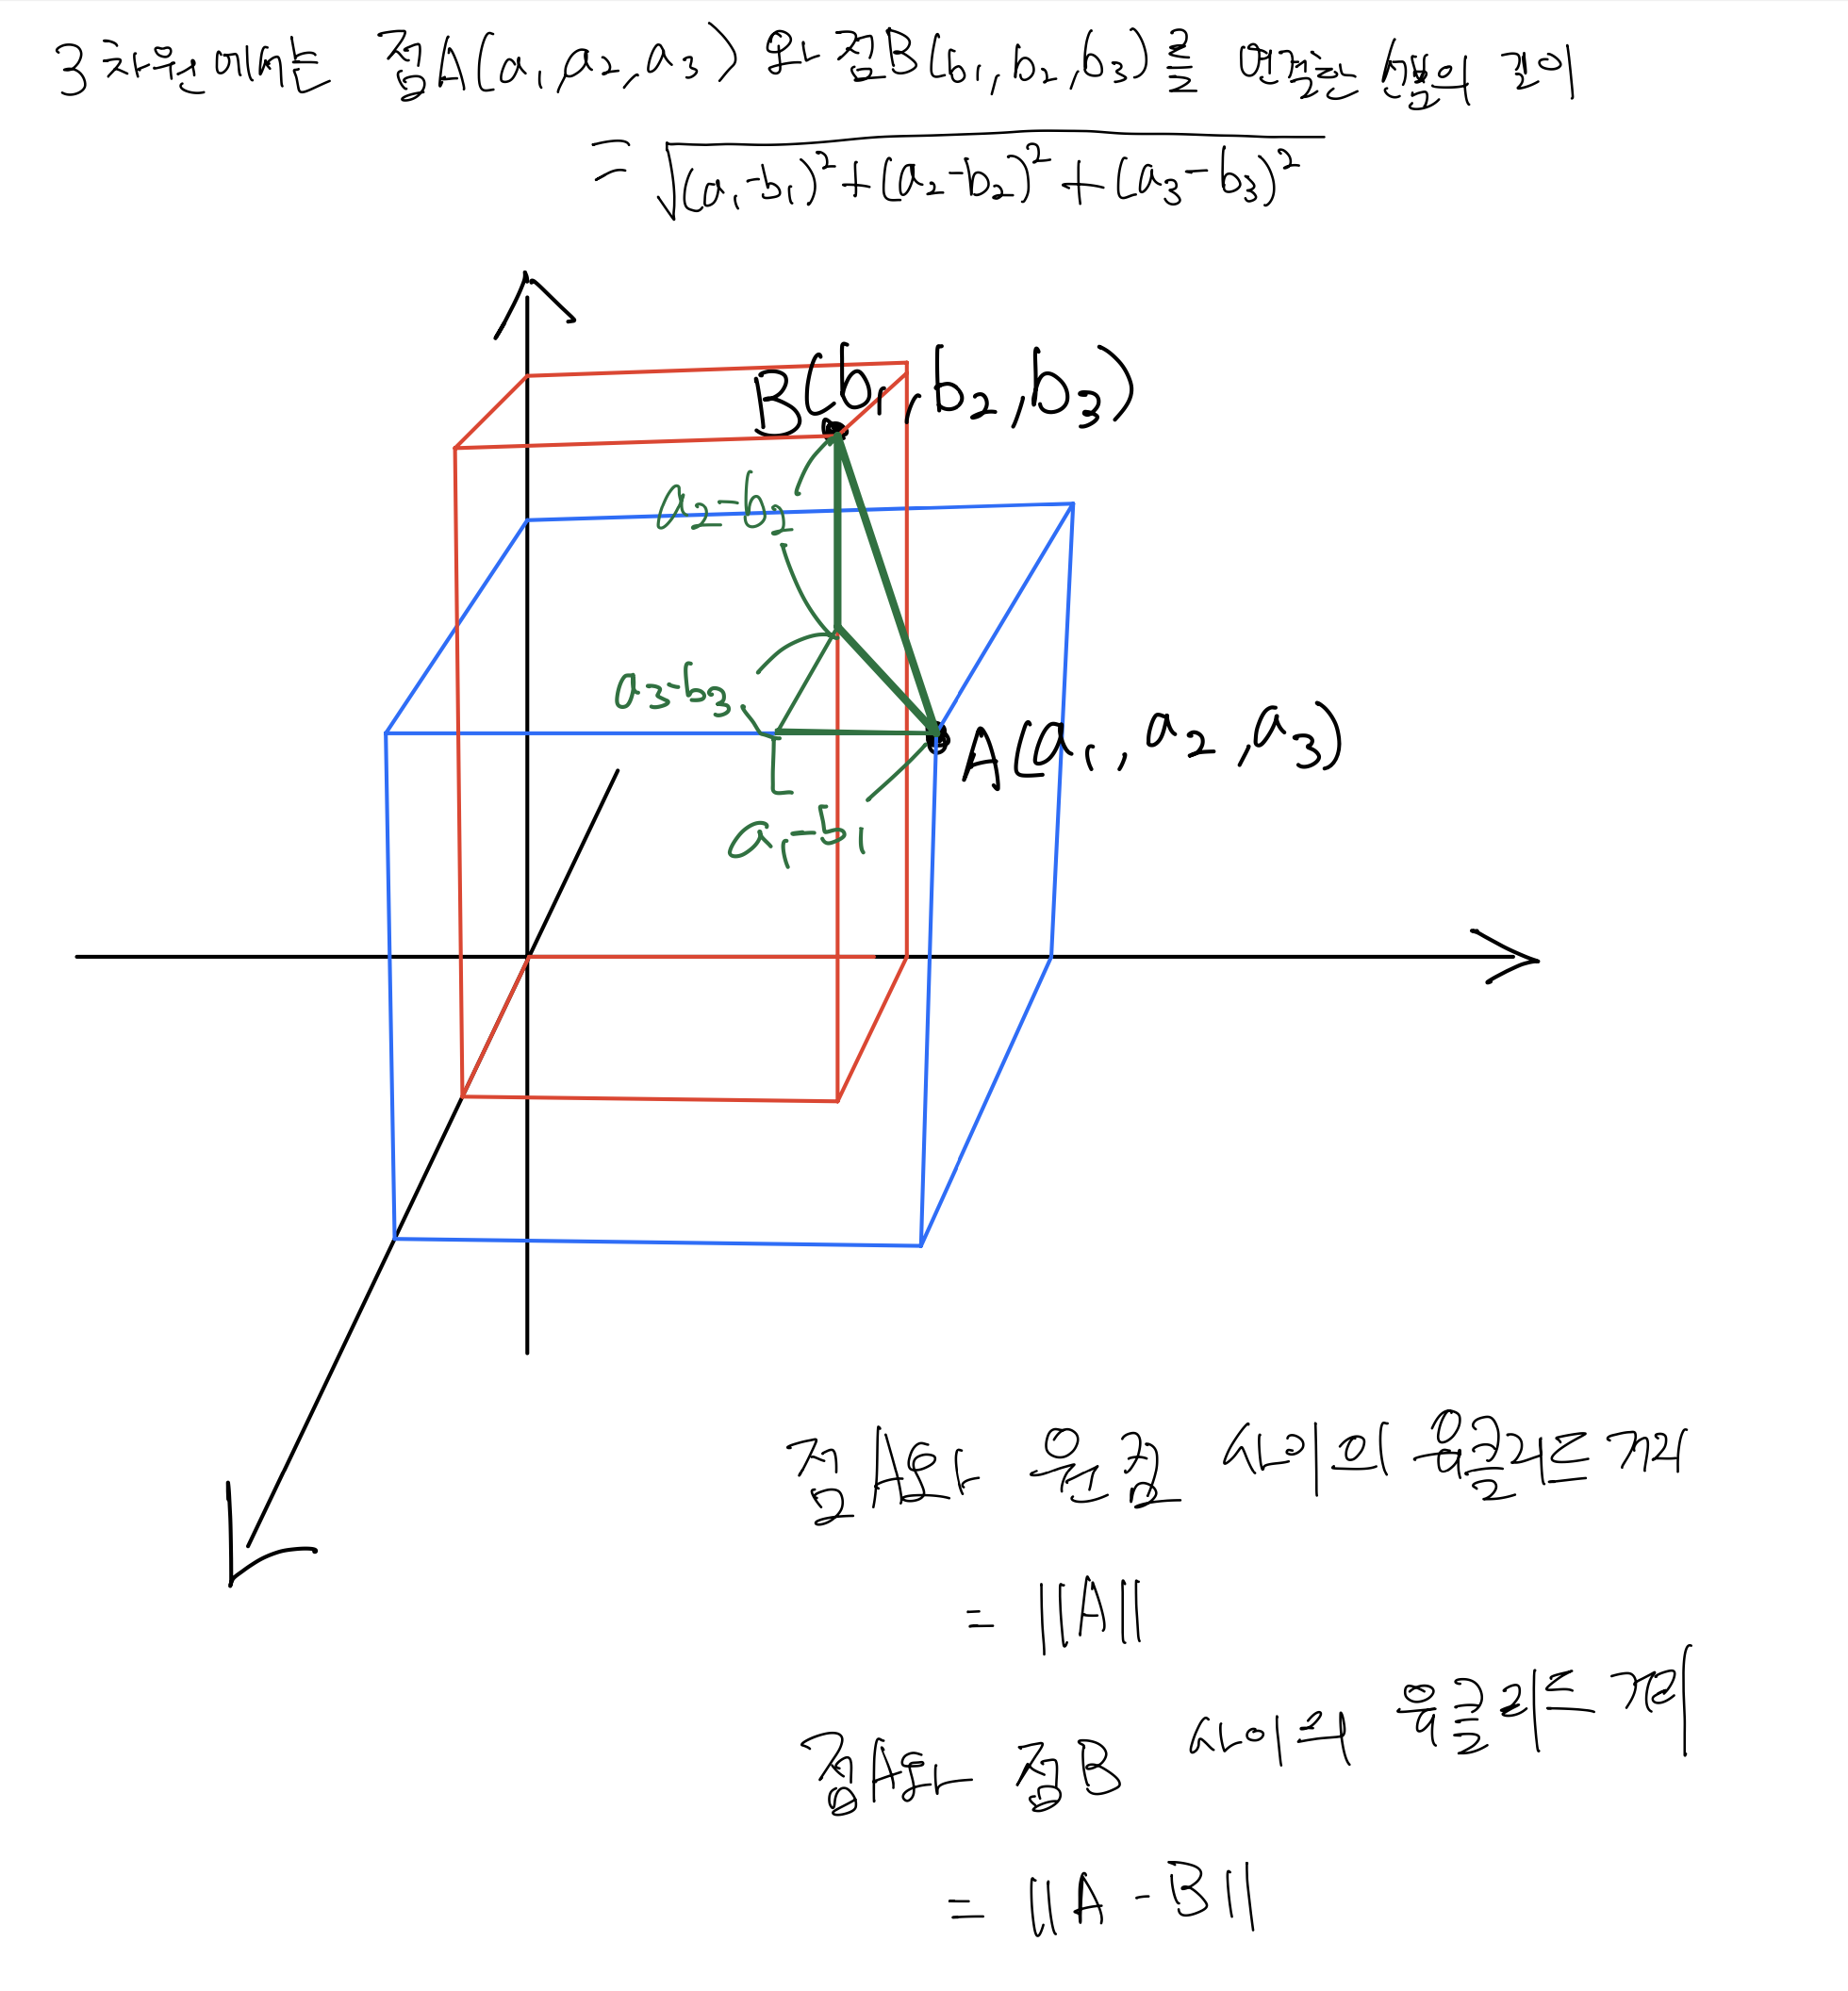 3차원에서는 점A(a₁,a₂,a₃)와 점B(b₁,b₂,b₃)를 연결한 선분의 길이
= √((a₁-b₁)²+(a₂-b₂)²+(a₃-b₃)²)
B(b₁,b₂,b₃)
a₂-b₂
a₃-b₃
A(a₁,a₂,a₃)
a₁-b₁
점A와 원점 사이의 유클리드 거리
= ||A||
점A와 점B 사이의 유클리드 거리
= ||A-B||